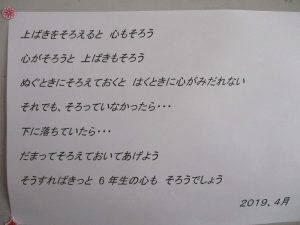 上ばきをそろえると 心もそろう
心がそろうと 上ばきもそろう
ぬぐときにそろえておくと はくときに心がみだれない
それでも、そろっていなかったら・・・
下に落ちていたら・・・
だまってそろえておいてあげよう
そうすればきっと 6年生の心も そろうでしょう
2019、4月